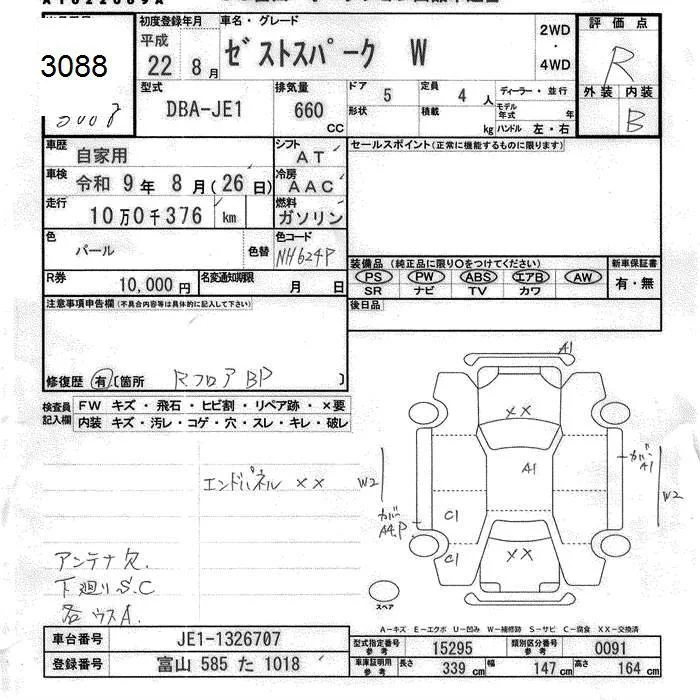 初度登録年月
車名・グレード
評価点
平成
22 8月
ゼストスパーク W
2WD
・
4WD
R
3088
型式
DBA-JE1
排気量
660
CC
ドア
5
定員
4 人
形状
積載
kg
ディーラー・並行
モデル年式 年
ハンドル 左・右
外装 内装
B
車歴
自家用
シフト
AT
セールスポイント(正常に機能するものに限ります)
車検
令和 9年 8月(26日)
冷房
AAC
走行
10万0千376 km
燃料
ガソリン
色
パール
色替
色コード
NH624P
装備品(純正品に限り○をつけてください)
新車保証書
PS PW ABS エアB AW
SR ナビ TV カワ
有・無
R券
10,000 円
名変通知期限
月 日
後日品
注意事項申告欄(不具合内容等は具体的に記入して下さい)
修復歴 有 〔箇所 RフロアBP 〕
検査員記入欄
FW キズ・飛石・ヒビ割・リペア跡・×要
内装 キズ・汚レ・コゲ・穴・スレ・キレ・破レ
A1
××
A1
カバー A1
W2
W2
カバー A4.P
C1
C1
××
スペア
エンドパネル ××
アンテナ欠
下廻りS.C
各ウスA.
A-キズ E-エクボ U-凹み W-補修跡 S-サビ C-腐食 XX-交換済
車台番号
JE1-1326707
型式指定番号 参考
15295
類別区分番号 参考
0091
登録番号
富山 585 た 1018
車庫証明用 参考
長さ 339 cm
幅 147 cm
高さ 164 cm